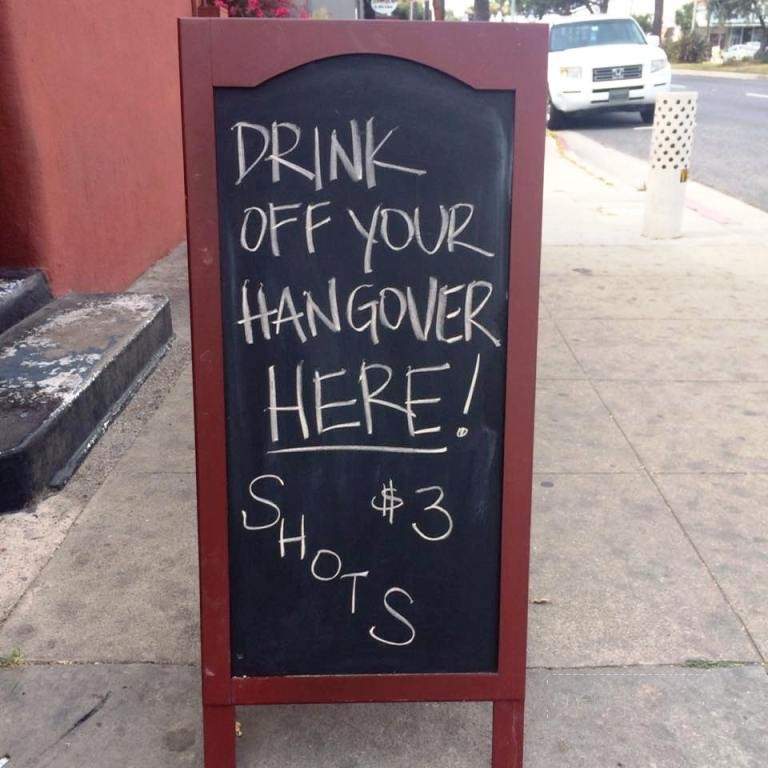 DRINK
OFF YOUR
HANGOVER
HERE!
$3
SHOTS